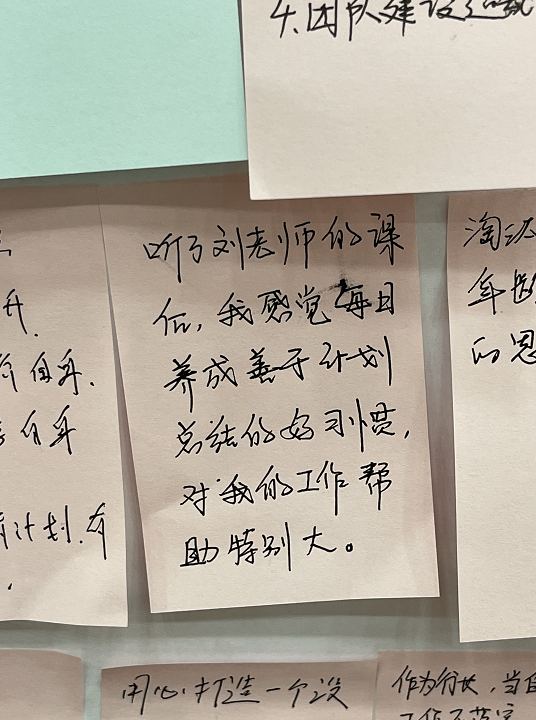 4.团队建设
听了刘老师的课
后,我感觉每日
养成善于计划
总结的好习惯,
对我的工作帮
助特别大。
升.
自身.
自身
计划.有
淘汰
年龄
的思
用心打造一个没
作为行长,当